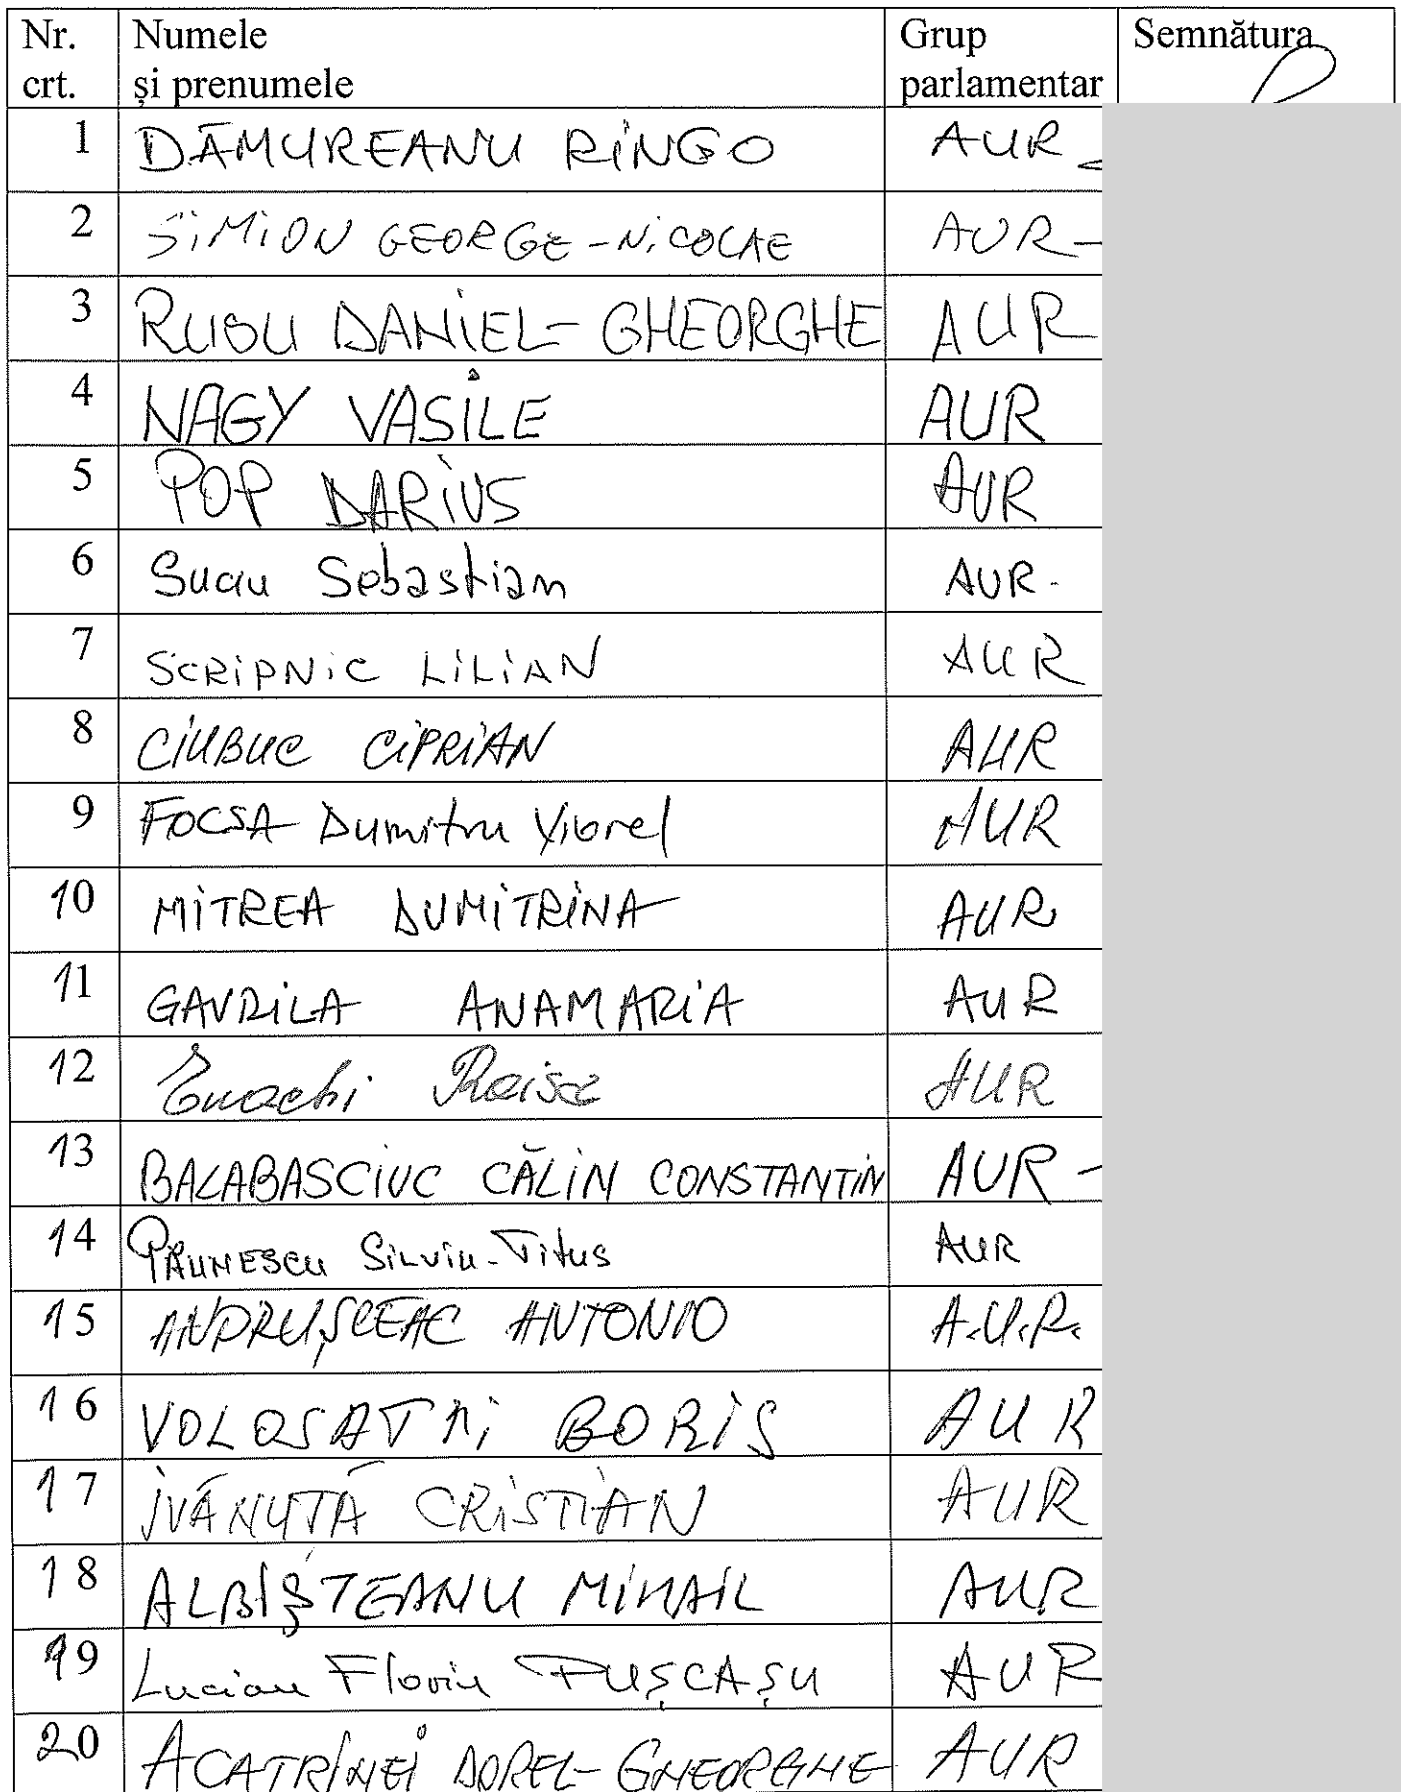 Nr. crt. Numele și prenumele Grup parlamentar Semnătura
1 DĂMUREANU RINGO AUR
2 SIMION GEORGE-NICOLAE AUR-
3 RUSU DANIEL-GHEORGHE AUR
4 NAGY VASILE AUR
5 POP DARIUS AUR
6 Suciu Sebastian AUR-
7 SCRIPNIC LILIAN AUR
8 CIUBUC CIPRIAN AUR
9 FOCSA Dumitru Viorel AUR
10 MITREA DUMITRINA AUR
11 GAVRILA ANAMARIA AUR
12 Enachi Raisa AUR
13 BALABASCIUC CĂLIN CONSTANTIN AUR-
14 PĂUNESCU SILVIU-Titus AUR
15 ANDRUȘCEAC ANTONIO A.U.R.
16 VOLOSATÎI BORIS AUR
17 IVĂNUȚĂ CRISTIAN AUR
18 ALBIȘTEANU MIHAIL AUR
19 Lucian Florin PUȘCAȘU AUR
20 ACATRINEI DOREL-GHEORGHE AUR